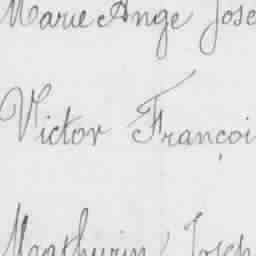 Marie Ange Jose
Victor Françoi
Mathurin Joseph